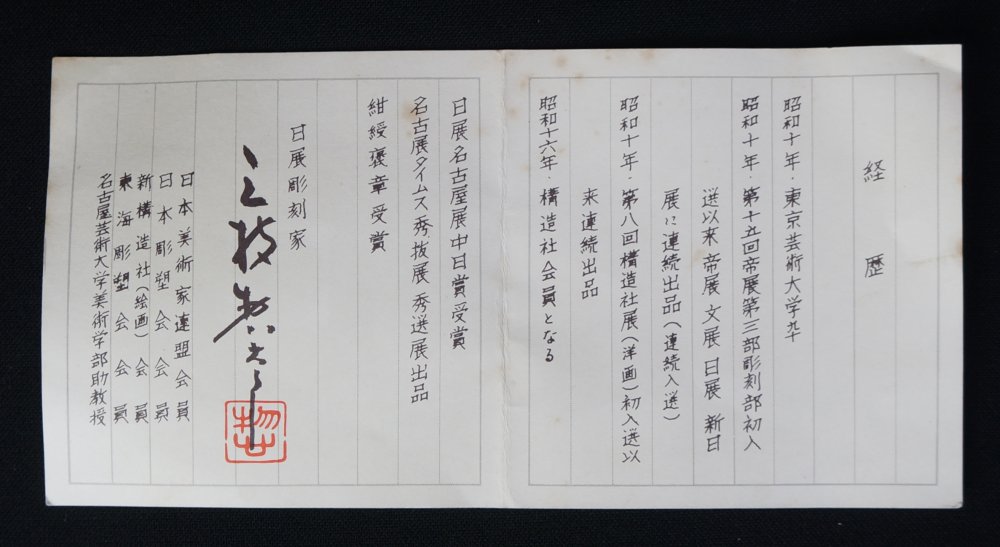 経歴
昭和十年・東京芸術大学卆
昭和十年・第十五回帝展第三部彫刻部初入
選以来 帝展 文展 日展 新日
展に連続出品(連続入選)
昭和十年・第八回構造社展(洋画)初入選以
来連続出品
昭和十六年・構造社会員となる
日展名古屋展中日賞受賞
名古展タイムス秀抜展 秀選展出品
紺綬褒章 受賞
日展彫刻家
三枝惣太郎
日本美術家連盟会員
日本彫塑会会員
新構造社(絵画)会員
東海彫塑会会員
名古屋芸術大学美術学部助教授